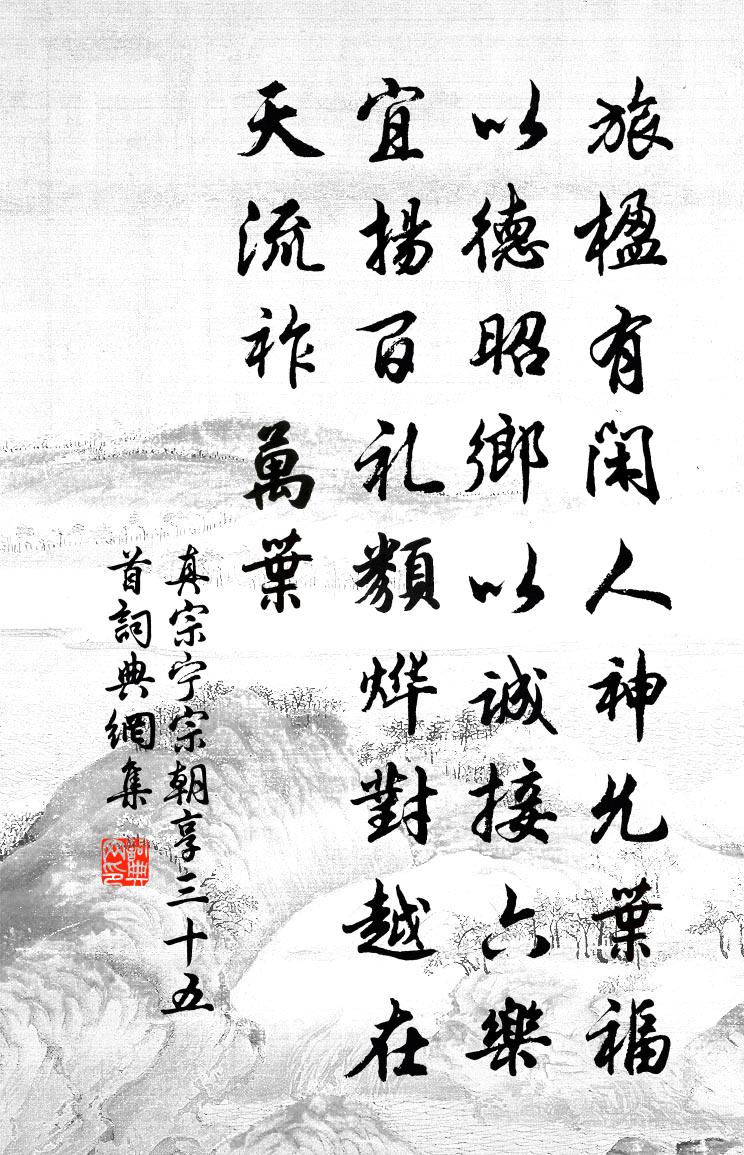 旅楹有閑人神允葉福
以德昭鄉以誠接六樂
宜揚百礼類燁對越在
天流祚萬葉
真宗宁宗朝享三十五
首詞典網集